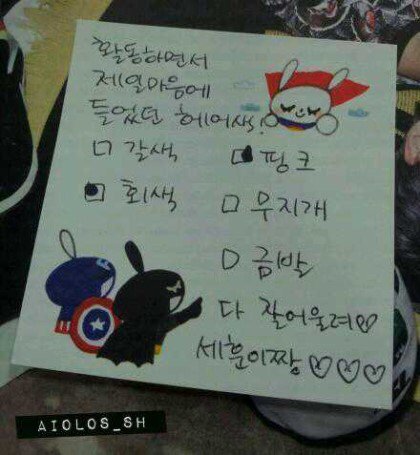 활동하면서
제일마음에
들었던 헤어색!
□ 갈색
■ 핑크
■ 회색
□ 무지개
□ 금발
다 잘어울려♡
세훈이짱 ♡♡♡
AIOLOS_SH